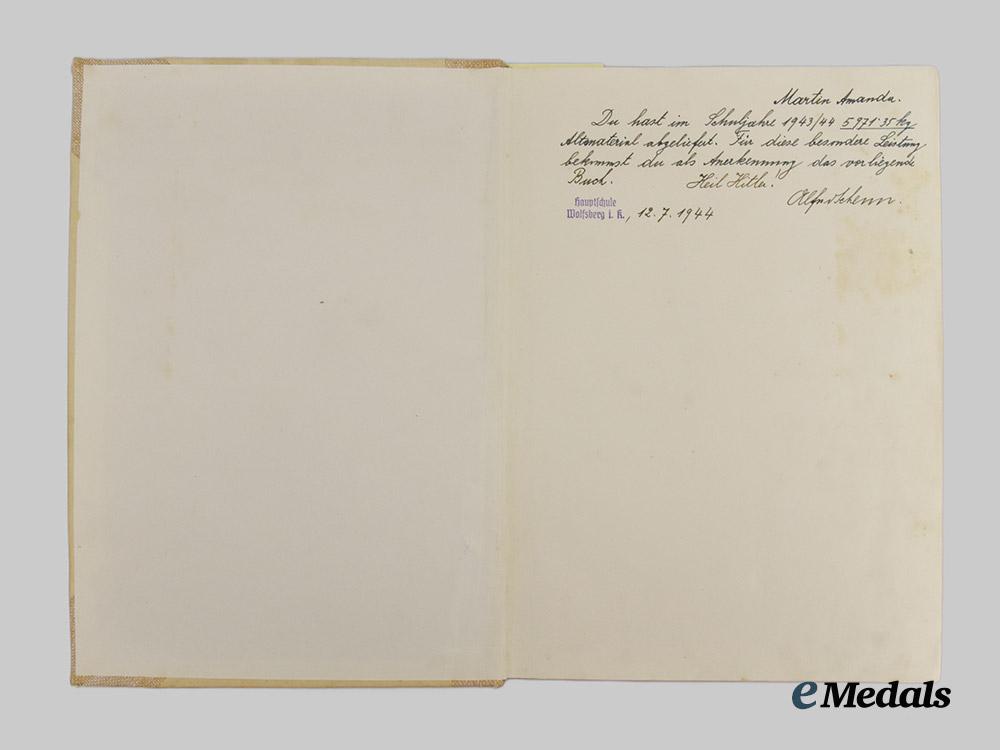 Martin Amanda.
Du hast im Schuljahre 1943/44 5971·35 kg
Altmaterial abgeliefert. Für diese besondere Leistung
bekommst du als Anerkennung das vorliegende
Buch. Heil Hitler!
Hauptschule
Wolfsberg i. K., 12. 7. 1944
eMedals